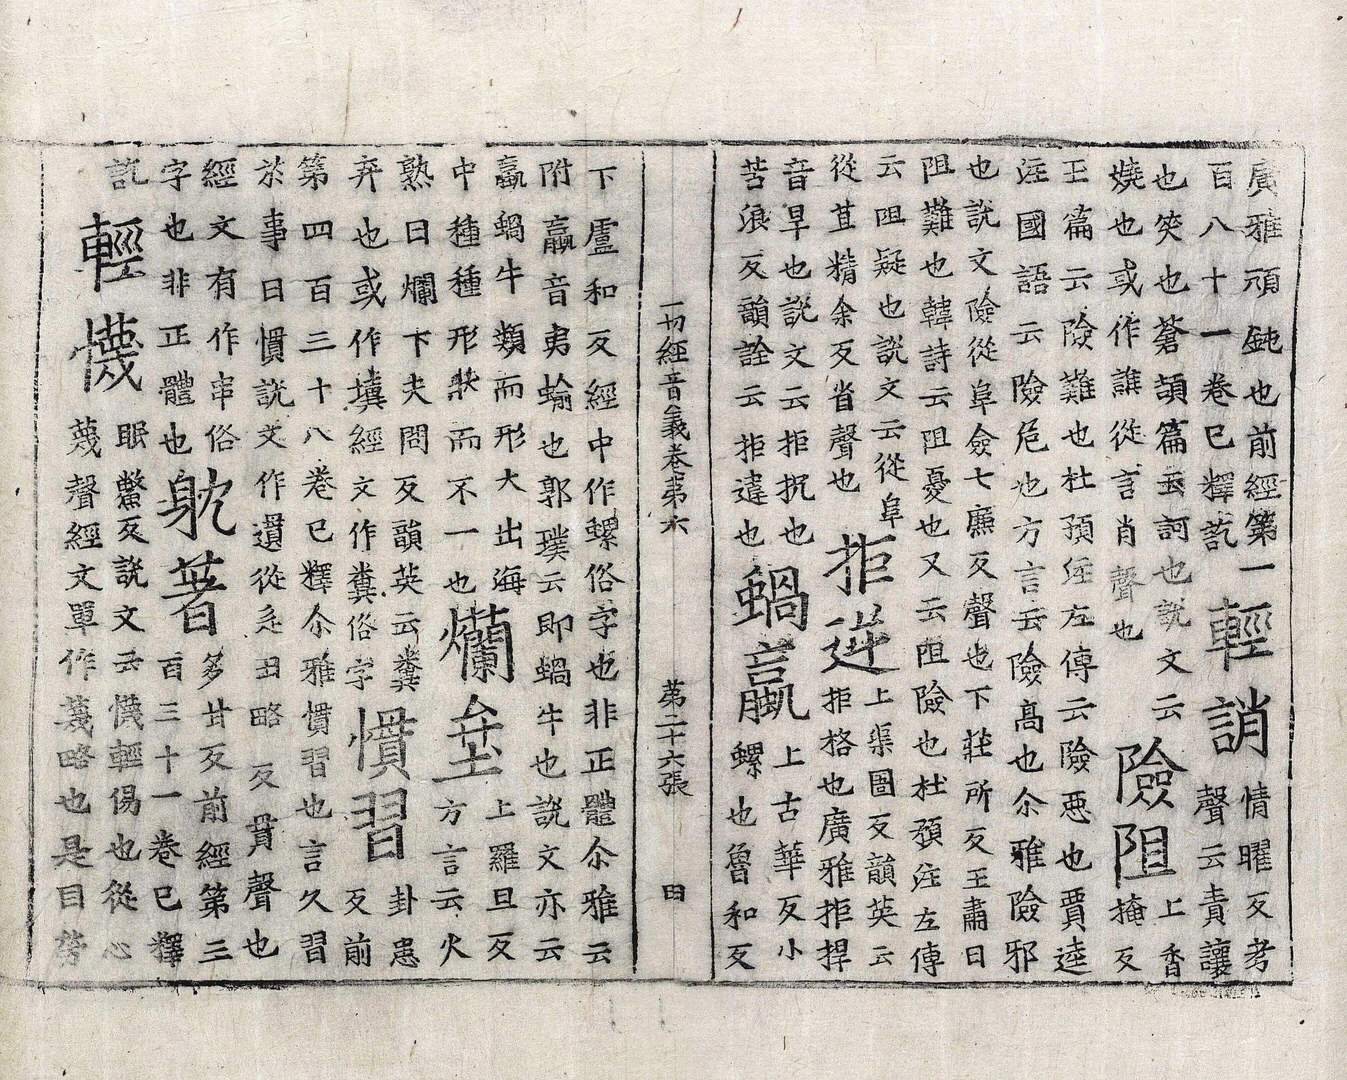 廣雅頑鈍也前經第一
百八十一卷已釋訖
輕誚
情曜反考
聲云責讓
也笑也蒼頡篇云訶也說文云
嬈也或作譙從言肖聲也
險阻
上香
掩反
王篇云險難也杜預注左傳云險惡也賈逵
注國語云險危也方言云險高也尒雅險邪
也說文險從阜僉七廉反聲也下莊所反王肅曰
阻難也韓詩云阻憂也又云阻險也杜預注左傳
云阻疑也說文云從阜
從苴精余反省聲也
拒逆
上渠圖反韻英云
拒格也廣雅拒捍
音早也說文云拒扤也
苦浪反韻詮云拒違也
蝸蠃
上古華反小
螺也魯和反
一切經音義卷第六 第二十六張 田
下盧和反經中作螺俗字也非正體尒雅云
附蠃音夷蝓也郭璞云即蝸牛也說文亦云
蠃蝸牛類而形大出海
中種種形狀而不一也
爛坌
上羅旦反
方言云火
熟曰爛下夫問反韻英云糞
弃也或作㙛經文作糞俗字
慣習
卦患
反前
第四百三十八卷已釋尒雅慣習也言久習
於事曰慣說文作遺從辵毌略反貫聲也
經文有作串俗
字也非正體也
躭著
多甘反前經第三
百三十一卷已釋
訖
輕懱
眠鱉反說文云懱輕傷也從心
蔑聲經文單作蔑略也是目勞